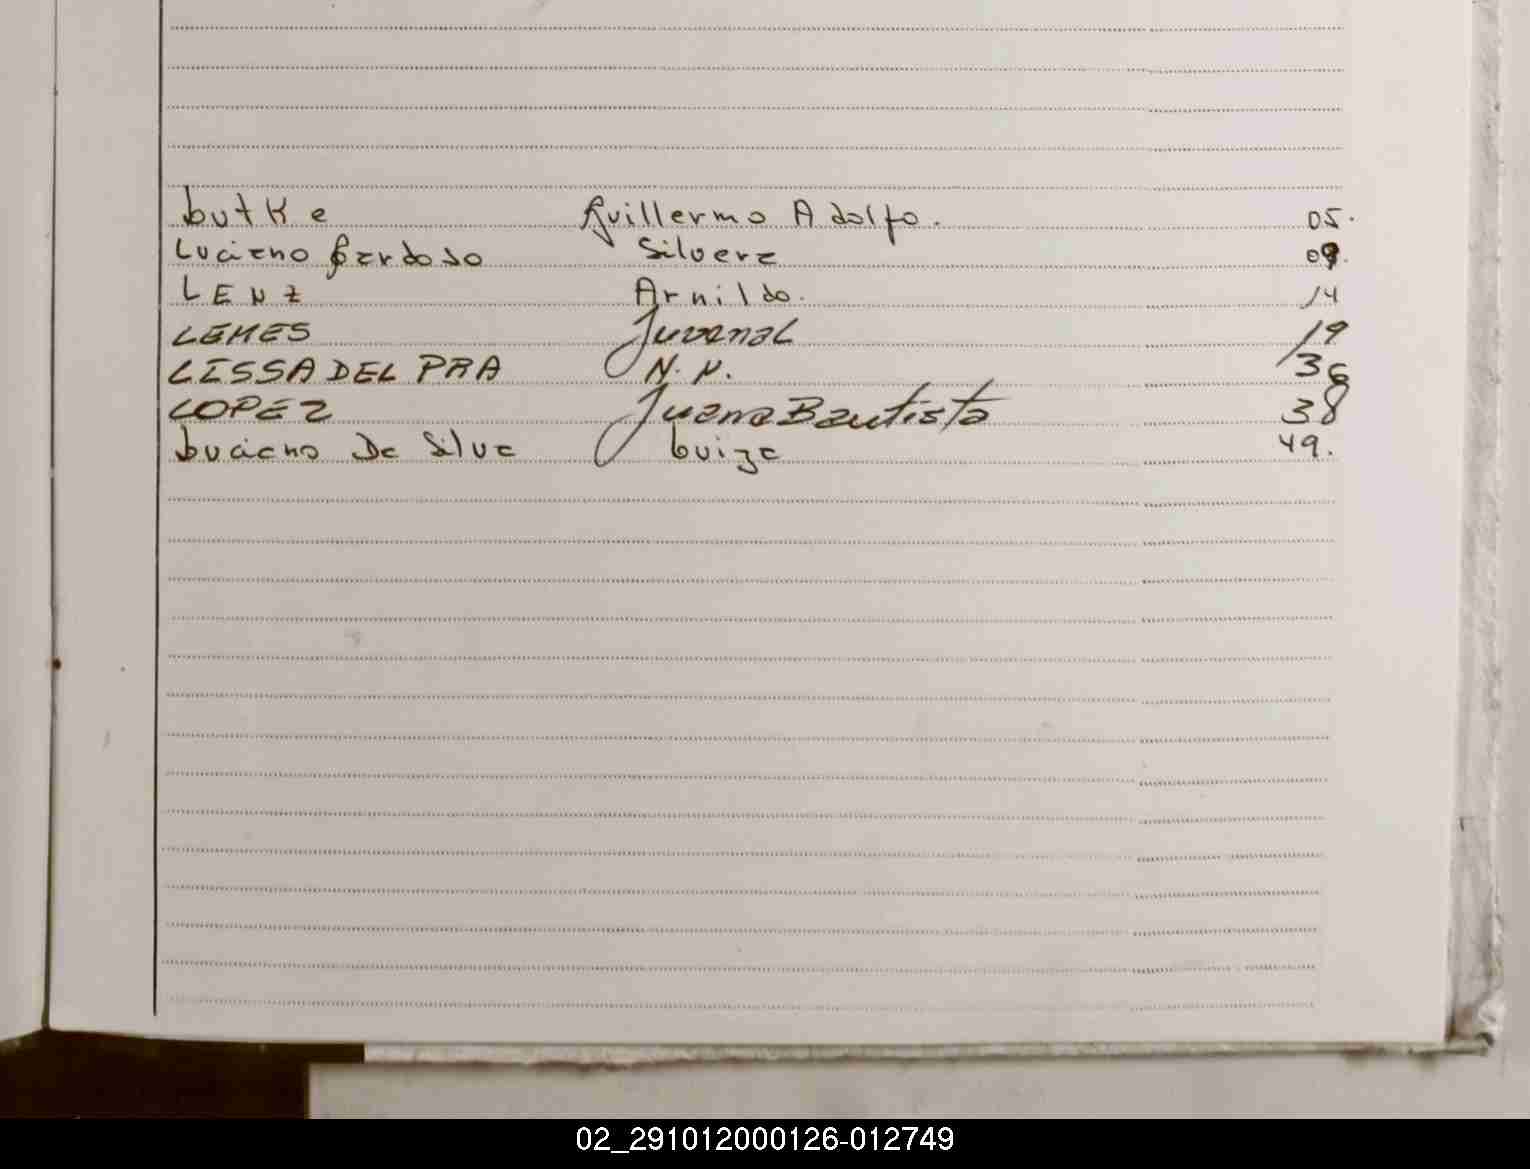 Lutke Guillermo Adolfo. 05.
Luciano Cardoso Silvera 09.
LENZ Arnildo. 14
LEMES Juvenal 19
LISSA DEL PRA N. N. 36
LOPEZ Juana Bautista 38
Luciano Da Silva Luiza 49.
02_291012000126-012749